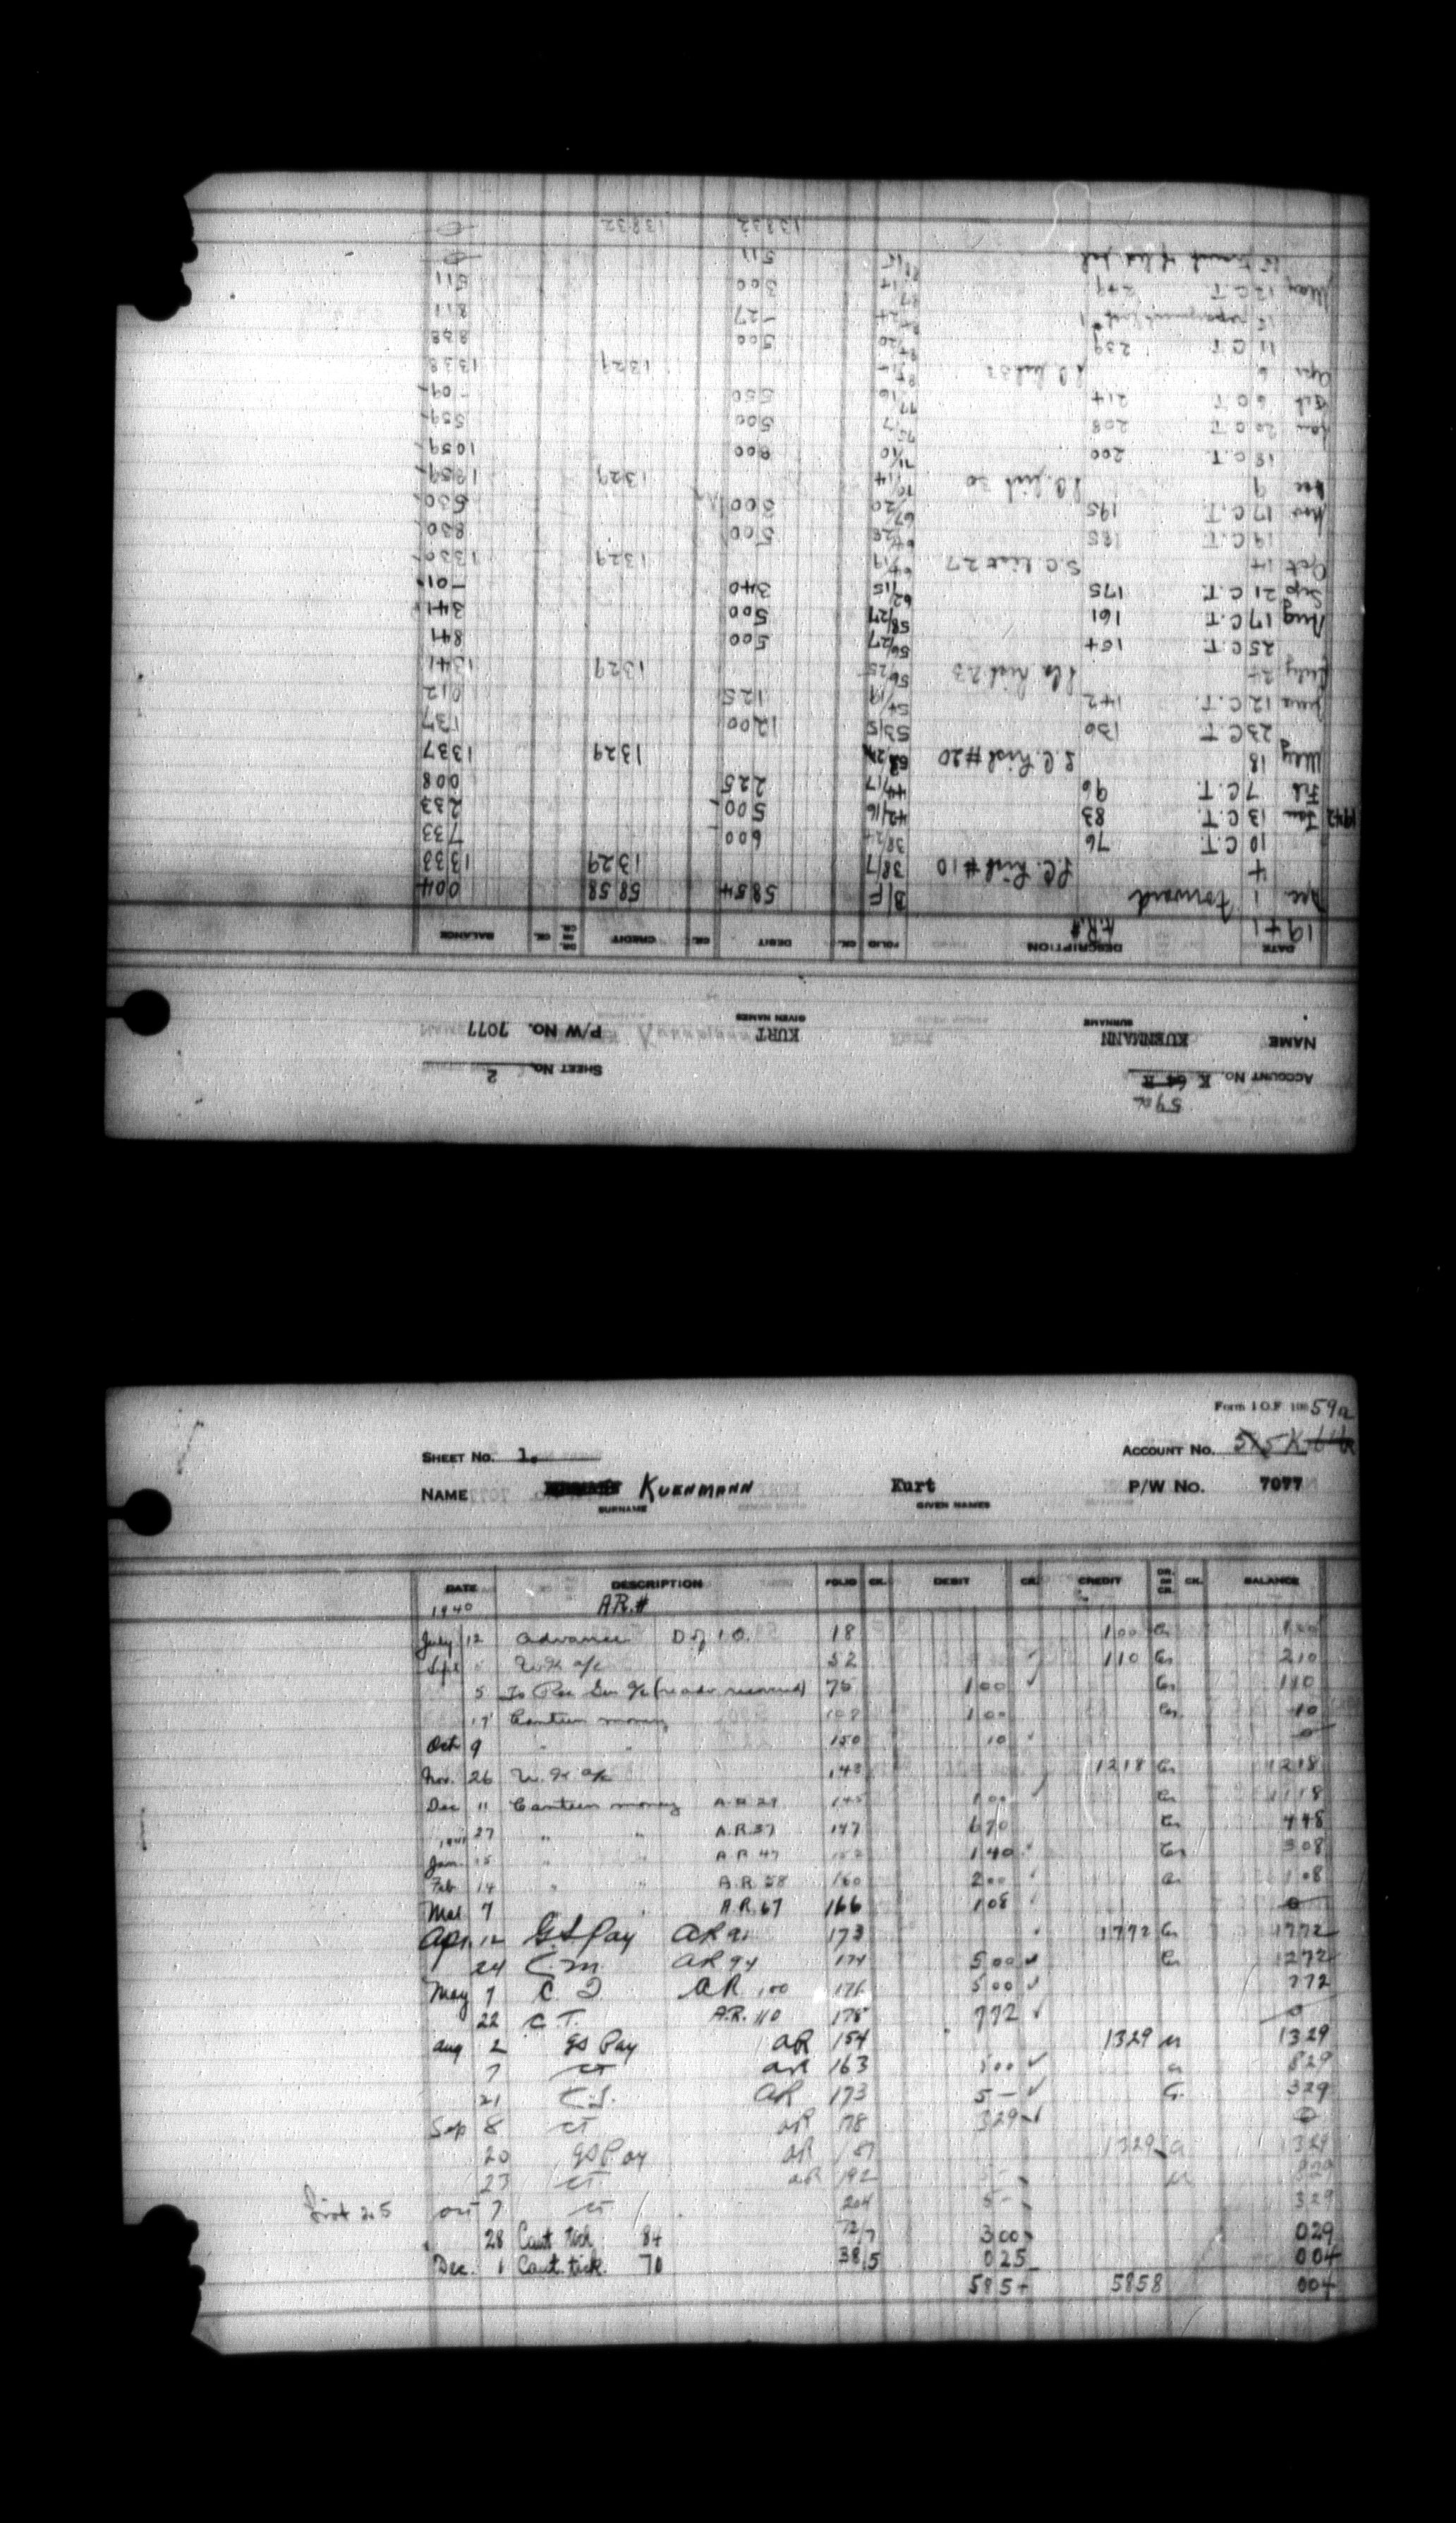 59a
ACCOUNT No. K 64 R
SHEET No. 2
NAME KUENMANN KURT P/W No. 7077
SURNAME GIVEN NAMES
DATE DESCRIPTION FOLIO CK. DEBIT CK. CREDIT DR. OR CR. CK. BALANCE
1941 A.R.#
Dec 1 Forward B/F 5854 5858 004
4 #10 38/7 1329 1333
10 C.T. 76 38/24 600 733
1942 Jan 13 C.T. 83 42/16 500 233
Feb 7 C.T. 96 44/17 225 008
May 18 #20 1329 1337
23 C.T. 130 53/5 1200 137
June 12 C.T. 142 54/19 125 012
July 24 List 23 56/25 1329 1341
25 C.T. 154 56/27 500 841
Aug 17 C.T. 161 58/27 500 341
Sep 21 C.T. 175 62/15 340 -01
Oct 14 S.C. List 27 64/19 1329 1330
19 C.T. 185 64/28 500 830
Nov 17 C.T. 195 67/20 300 530
Dec 9 List 30 70/14 1329 1859
18 C.T. 200 71/10 800 1059
Jan 20 C.T. 208 75/7 500 559
Feb 6 C.T. 214 77/16 550 -09
Apr 6 1329 1338
11 C.T. 239 500 838
15 -27 811
May 12 C.T. 249 300 511
15 511
13832 13832
Form I.O.F. 59a
SHEET No. 1. ACCOUNT No.
NAME KUENMANN Kurt P/W No. 7077
SURNAME GIVEN NAMES
DATE DESCRIPTION FOLIO CK. DEBIT CK. CREDIT DR. OR CR. CK. BALANCE
1940 AR.#
July 12 Advance D of I.O. 18 100 Cr 100
Sept 52 110 Cr 210
5 75 100 Cr 110
19 Canteen money 100 Cr 10
Oct 9 " " 150 10 0
Nov. 26 143 1218 Cr 1218
Dec 11 Canteen money A.R. 29 145 100 Cr 1118
27 " " A.R. 37 147 670 Cr 448
1941 Jan. 15 " " A.R. 47 140 Cr 308
Feb 14 " " A.R. 58 160 200 Cr 108
Mar 7 " A.R. 67 166 108 0
Apr. 12 G S Pay AR 91 173 1772 Cr 1772
24 C.M. AR 94 174 500 Cr 1272
May 7 C. T AR 100 176 500 772
22 C.T. A.R. 110 178 772 0
Aug 2 GS Pay AR 154 1329 cr 1329
7 CT AR 163 500 cr 829
21 C.T. AR 173 5- Cr 329
Sep 8 CT AR 178 329 0
20 GS Pay AR 187 1329 cr 1329
23 CT AR 192 5- cr 829
Oct 7 CT 204 5- 329
28 Cant tick 84 300 029
Dec. 1 Cant. tick. 70 38/5 025 004
5854 5858 004